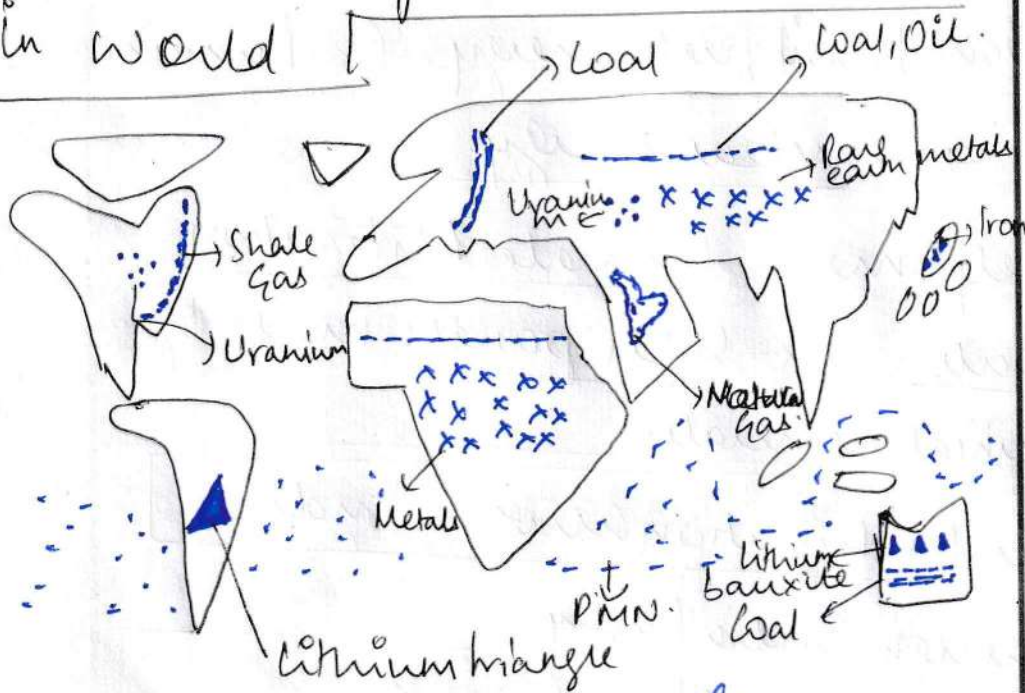 in world
Coal
Coal, Oil.
Rare earth metals
Uranium
Iron
Shale Gas
Uranium
Natural Gas
Metals
Lithium
bauxite
Coal
PMN.
Lithium triangle